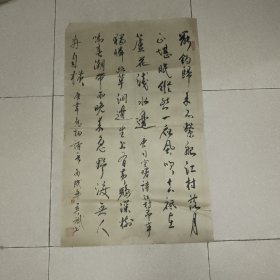 罷釣歸来不繫船江村落月
正堪眠縱然一夜風吹去只在
蘆花淺水邊 司空曙詩江村即事
獨憐幽草澗邊生上有黄鸝深樹
鳴春潮帶雨晚来急野渡無人
舟自橫